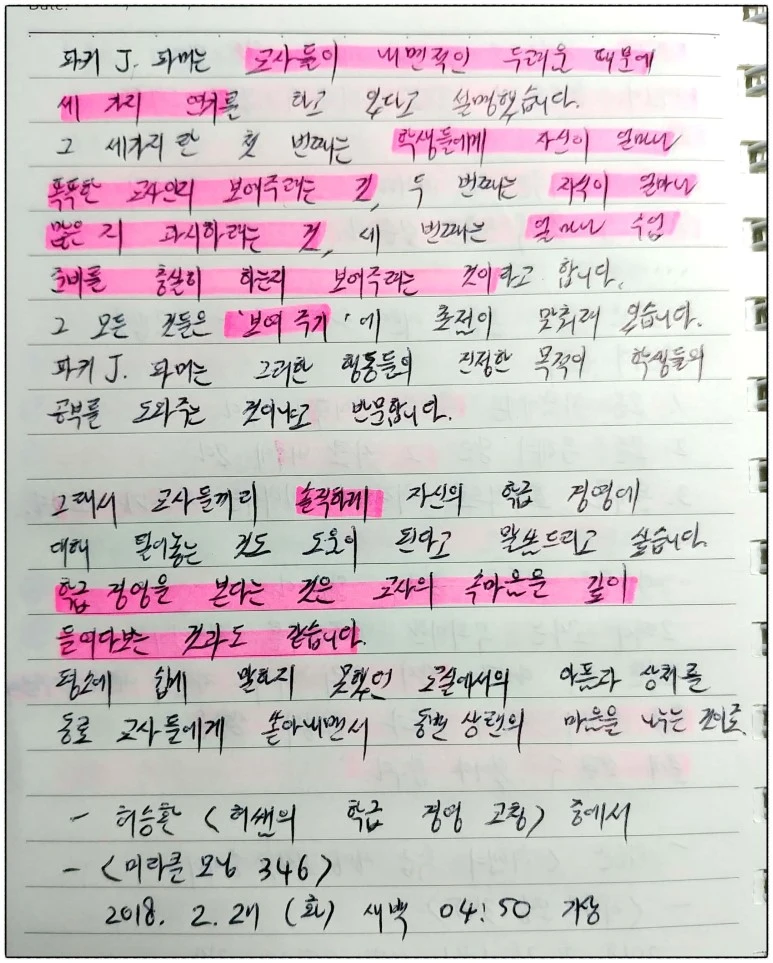 Date:
파커 J. 파머는 교사들이 내면적인 두려운 때문에
세 가지 연기를 하고 있다고 설명했습니다.
그 세가지란 첫 번째는 학생들에게 자신이 얼마나
똑똑한 교사인지 보여주려는 것, 두 번째는 지식이 얼마나
많은 지 과시하려는 것, 세 번째는 얼마나 수업
준비를 충실히 하는지 보여주려는 것이라고 합니다.
그 모든 것들은 '보여 주기'에 초점이 맞춰져 있습니다.
파커 J. 파머는 그러한 행동들의 진정한 목적이 학생들의
공부를 도와주는 것이냐고 반문합니다.
그래서 교사들끼리 솔직하게 자신의 학급 경영에
대해 털어놓는 것도 도움이 된다고 말씀드리고 싶습니다.
학급 경영을 본다는 것은 교사의 속마음을 깊이
들여다보는 것과도 같습니다.
평소에 쉽게 말하지 못했던 교실에서의 아픔과 상처를
동료 교사들에게 쏟아내면서 동병상련의 마음을 나누는 것이죠.
- 허승환 <허쌤의 학급 경영 코칭> 중에서
- <미라클 모닝 346>
2018. 2. 27 (화) 새벽 04:50 기상